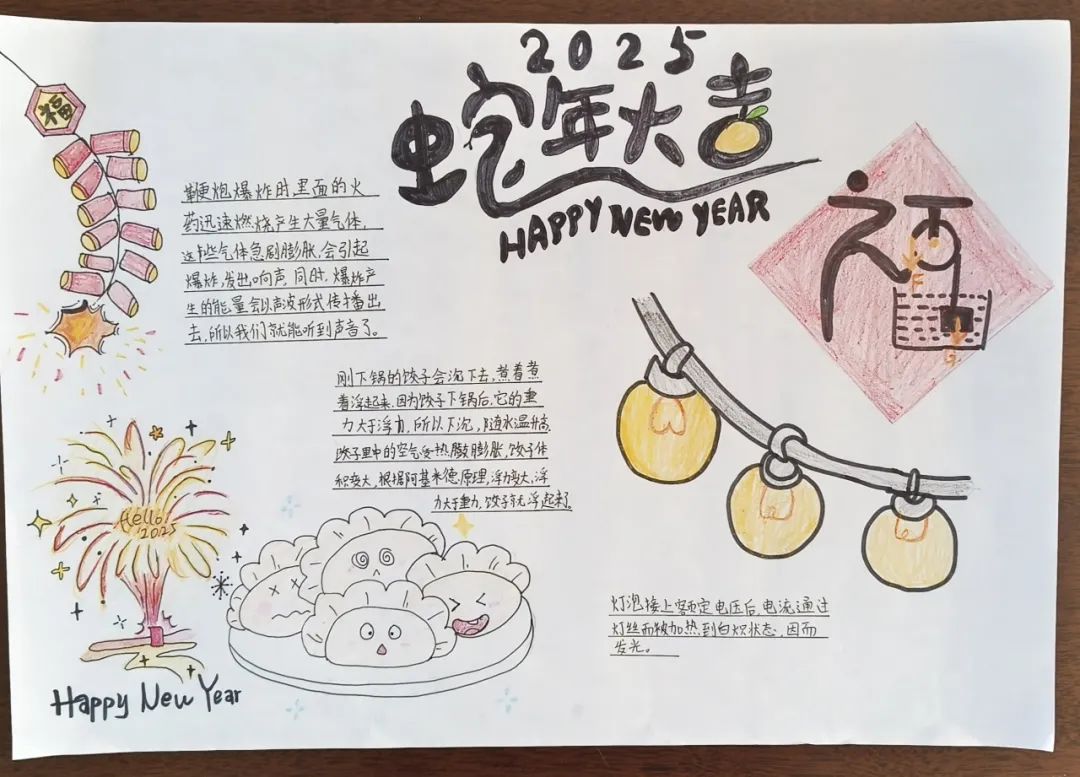 2025
蛇年大吉
HAPPY NEW YEAR
福
鞭炮爆炸时里面的火
药迅速燃烧产生大量气体,
这些气体急剧膨胀,会引起
爆炸,发出响声,同时,爆炸产
生的能量会以声波形式传播出
去,所以我们就能听到声音了。
福
F
G
刚下锅的饺子会沉下去,煮着煮
着浮起来,因为饺子下锅后,它的重
力大于浮力,所以下沉,随水温升高,
饺子里中的空气受热膨胀,饺子体
积变大,根据阿基米德原理,浮力变大,浮
力大于重力,饺子就浮起来了。
Hello!
2025
Happy New Year
灯泡接上额定电压后,电流通过
灯丝而被加热到白炽状态,因而
发光。